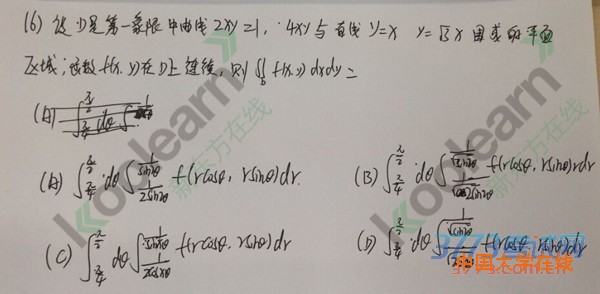 (6) 设D是第一象限中曲线2xy=1, 4xy与直线y=x y=√3x围成的平面
区域,函数f(x,y)在D上连续,则∬_D f(x,y)dxdy=
(A) ∫ dθ ∫
(A) ∫_{π/4}^{π/3} dθ ∫_{1/2sin2θ}^{1/sin2θ} f(rcosθ, rsinθ)dr.
(B) ∫_{π/4}^{π/3} dθ ∫_{1/√2sin2θ}^{1/√sin2θ} f(rcosθ, rsinθ)rdr
(C) ∫_{π/4}^{π/3} dθ ∫ f(rcosθ, rsinθ)dr
(D) ∫_{π/4}^{π/3} dθ ∫_{1/√2sin2θ}^{1/√sin2θ} f(rcosθ, rsinθ)dr
koolearn
新东方在线
koolearn
新东方在线
中国大学在线